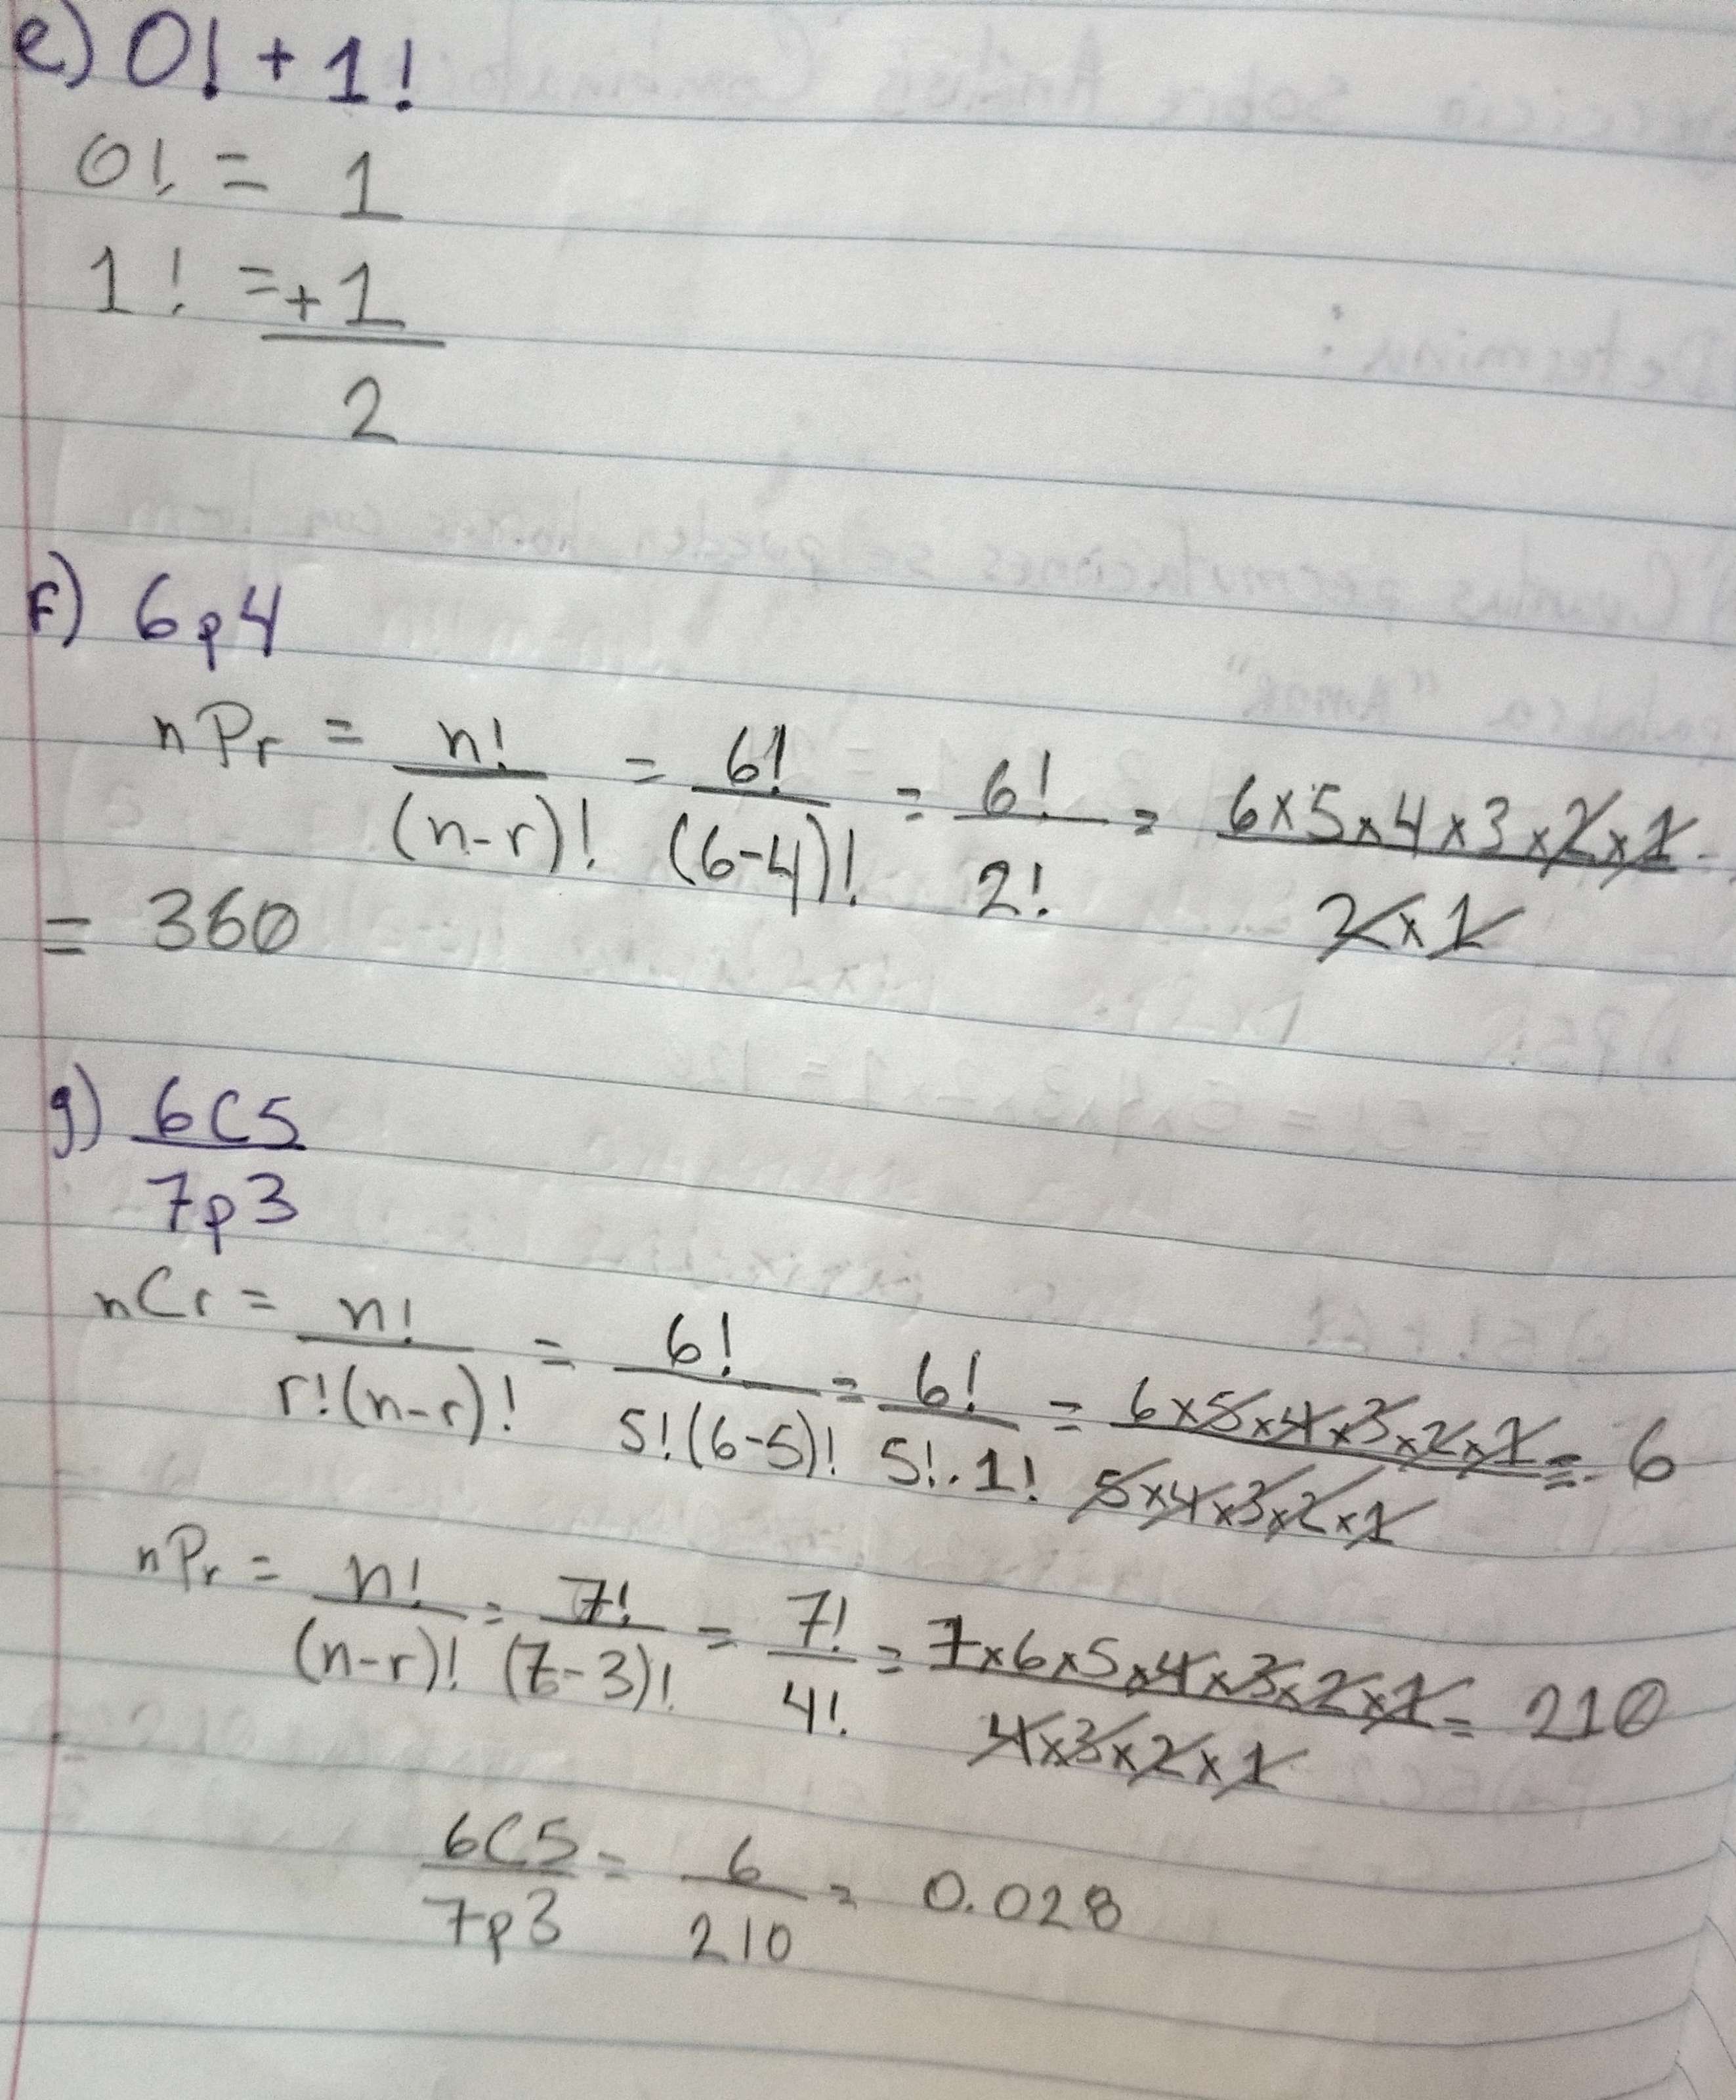 e) 0! + 1!
0! = 1
1! = + 1
2
f) 6p4
nPr = n!/(n-r)! = 6!/(6-4)! = 6!/2! = 6x5x4x3x2x1/2x1
= 360
g) 6C5/7p3
nCr = n!/r!(n-r)! = 6!/5!(6-5)! = 6!/5!.1! = 6x5x4x3x2x1/5x4x3x2x1 = 6
nPr = n!/(n-r)! = 7!/(7-3)! = 7!/4! = 7x6x5x4x3x2x1/4x3x2x1 = 210
6C5/7p3 = 6/210 = 0.028